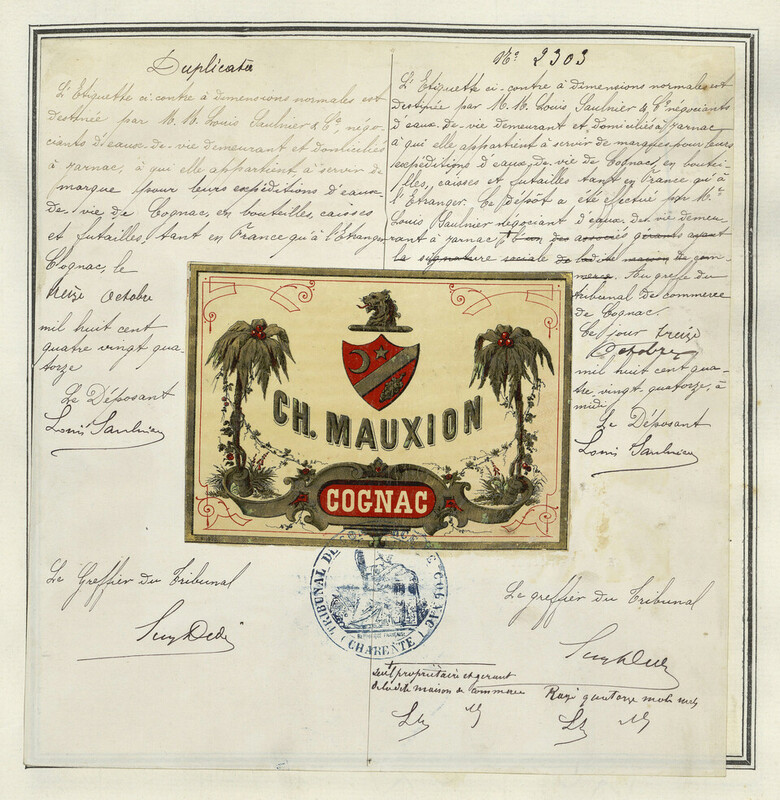 Duplicata
L'Etiquette ci-contre à dimensions normales est
destinée par M. M. Louis Saulnier & Cº, négo-
ciants d'eaux-de-vie demeurant et domiciliés
à Jarnac, à qui elle appartient à servir de
marque pour leurs expéditions d'eaux-
de-vie de Cognac, en bouteilles, caisses
et futailles, tant en France qu'à l'Etranger
Cognac, le
treize Octobre
mil huit cent
quatre vingt qua-
torze
Le Déposant
Louis Saulnier
Le Greffier du Tribunal
Nº 2303
L'Etiquette ci-contre à dimensions normales est
destinée par M. M. Louis Saulnier & Cº négociants
d'eaux-de-vie demeurant et domiciliés à Jarnac
à qui elle appartient à servir de marque pour leurs
expéditions d'eaux-de-vie de Cognac, en boutei-
lles, caisses et futailles tant en France qu'à
l'Etranger. Ce dépôt a été effectué par Mr
Louis Saulnier négociant d'eaux-de-vie demeu-
rant à Jarnac l'un des associés gérants ayant
la signature sociale de ladite maison de com-
merce. Au greffe du
tribunal de commerce
de Cognac.
Ce jour treize
Octobre
mil huit cent qua-
tre vingt quatorze, à
midi
Le Déposant
Louis Saulnier
Le greffier du Tribunal
CH. MAUXION
COGNAC
TRIBUNAL DE COGNAC
(CHARENTE)
REPUBLIQUE FRANÇAISE
seul propriétaire et gérant
de la dite maison de commerce
Rayé quatorze mots nuls